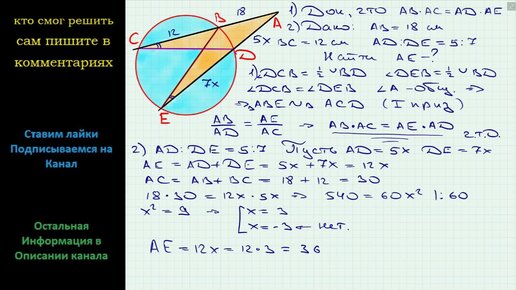 кто смог решить
сам пишите в
комментариях
Ставим лайки
Подписываемся на
Канал
Остальная
Информация в
Описании канала
18
A
B
12
C
D
5x
7x
E
1) Док, что AB·AC=AD·AE
2) Дано: AB=18 см
BC=12 см AD:DE=5:7
Найти AE-?
1) ∠DCB=½∪BD ∠DEB=½∪BD
∠DCB=∠DEB ∠A-общ. ⇒
⇒ △ABE∾△ACD (I приз)
AB/AD = AE/AC ⇒ AB·AC=AE·AD
ч.т.д.
2) AD:DE=5:7 Пусть AD=5x DE=7x
AE=AD+DE=5x+7x=12x
AC=AB+BC=18+12=30
18·30=12x·5x ⇒ 540=60x² |:60
x²=9 ⇒ [x=3
x=-3 - нет.
AE=12x=12·3=36